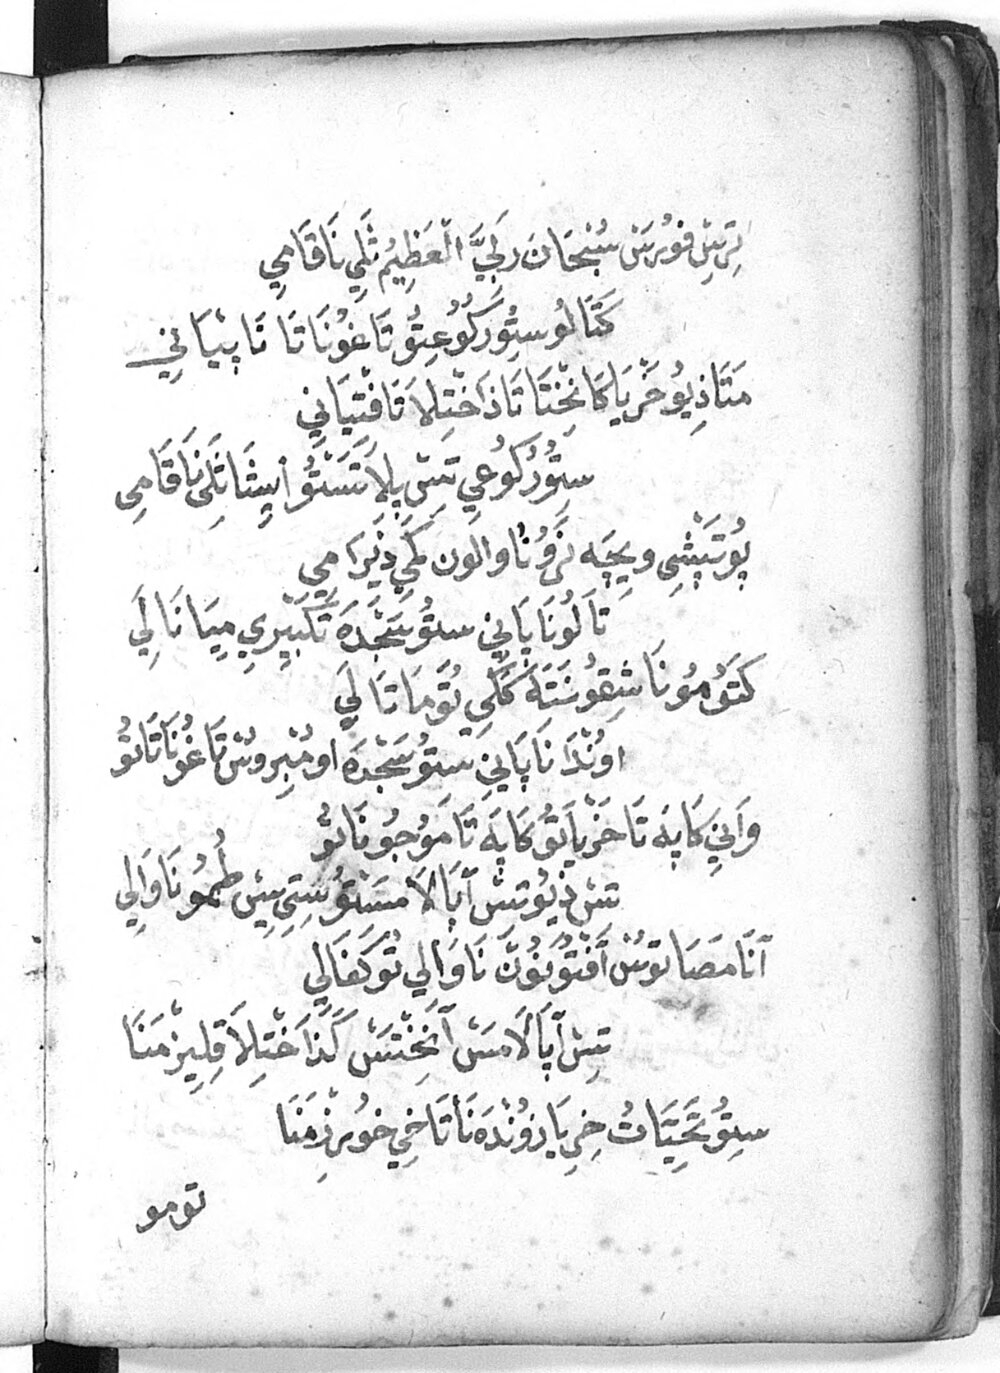 تِرَيِشْ فوُرَيشْ سُبْحَانَ رَبِّيَ الْعَظِيمُ ثَلِي نَا قَامِي
كَتَالُو سِتُو رُكُوعِتُو تَا غُونَاتَا نَا پِيَانِي
مَتَاذِيُو خَرْيَا كَا نِخْتَا تَا ذَاخْتِلَا تَا فْتِيَانِي
سِتُو رُكُوعِي تَيسْ پِلَاتَسْتُو اِيسِّثَا ثَلِي نَا قَامِي
پُوتَپْشِي وِيچَه نَرَوُنَا وَالَون كَمِي ذَيَرامِي
تَا لُونَا پَانِي سْتُو سَجْدَهَ تَكْبِيرِي مِيَا نَا لَي
كَتَوُمُونَا شِقُونَتَهَ كَلَي تُومَا تَا لَي
اوُنْذَا نَا پَانِي سْتُو سَجْدَهَ اومْبِروُسْ تَا غُونَاتَا تُو
وَانِي كَاپَه تَا خَرْيَا تُو كَاپَه تَا مَوُجُونَا تُو
تِسْ ذْيُوتِسْ آپَالَامَسْتُو سْتِي مِيسْ طُمُونَا وَالِي
آنَامَصَا تُوسْ آفْتُونُونَ نَا وَالِي تُو كَفَالِي
تِسْ آپَالَامَسْ آنِخْتَسْ كَذَاخْتِلَا قِلِيزْمَنَا
سِتُو تَحِيَّاتُ خِرِيَا زوُنْدَهَ نَا تَا خِي خُورِزْمَنَا
تومو